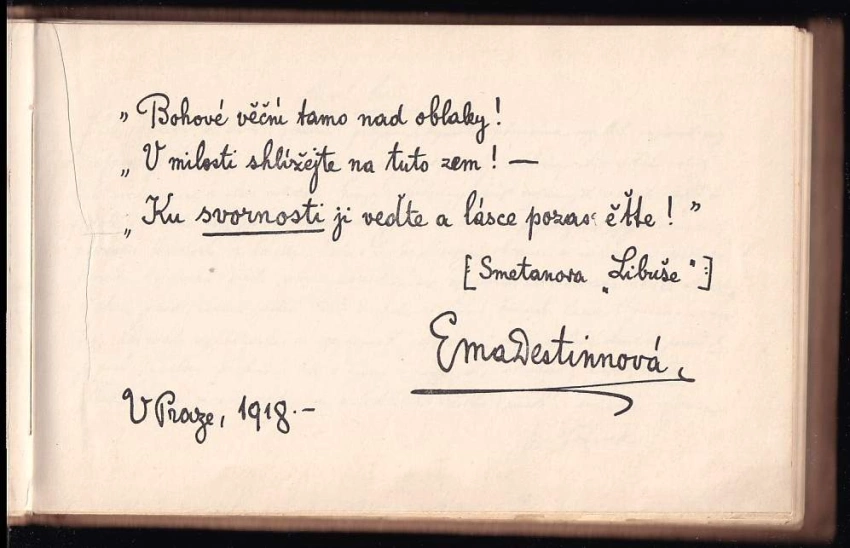 „Bohové věční tamo nad oblaky!
„V milosti shlížejte na tuto zem! —
„Ku svornosti ji veďte a lásce !”
[Smetanova „Libuše"]
EmaDestinnová,
V Praze, 1918.–